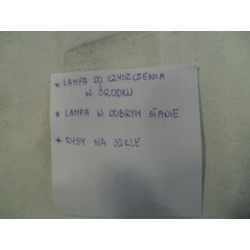 * LAMPA DO CZYSZCZENIA
W ŚRODKU
* LAMPA W DOBRYM STANIE
* RYSY NA SZKLE